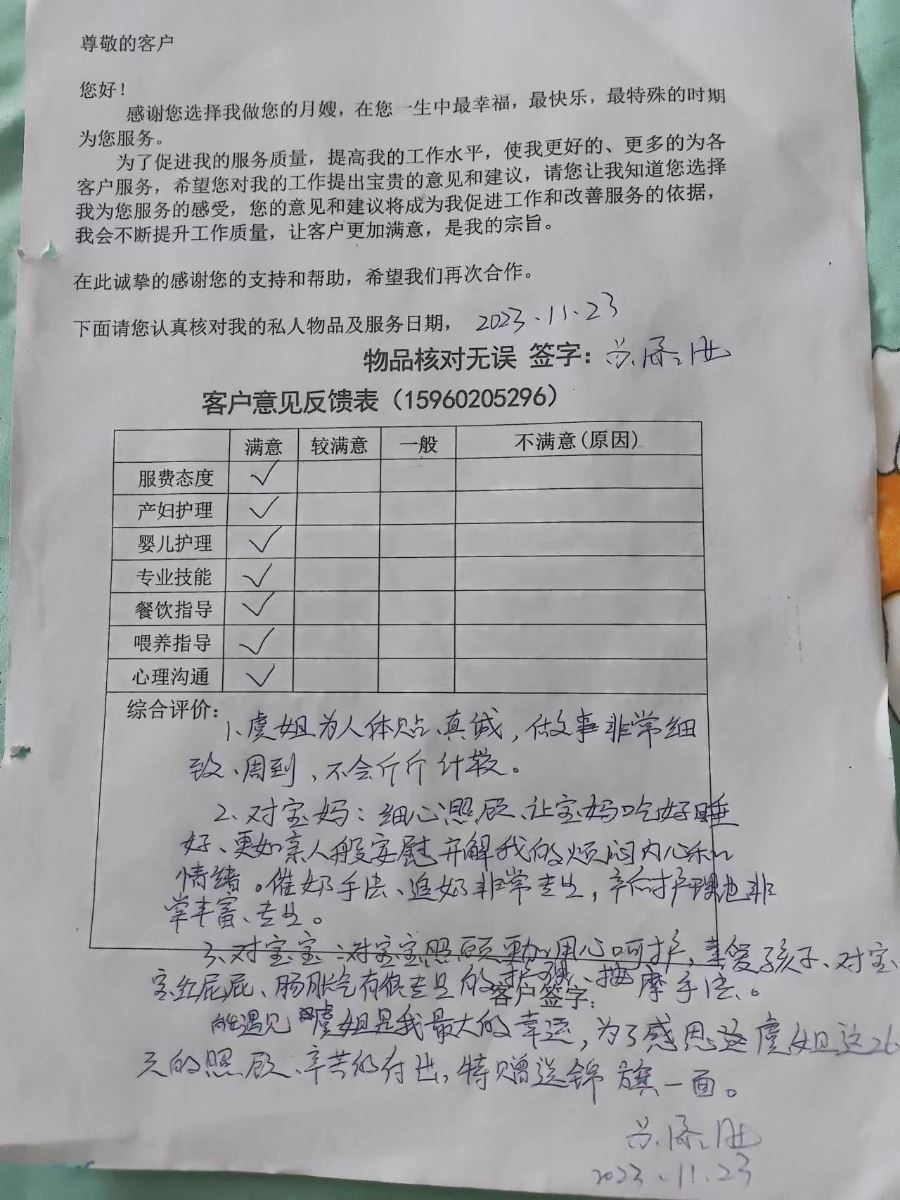 尊敬的客户
您好！
感谢您选择我做您的月嫂，在您一生中最幸福，最快乐，最特殊的时期
为您服务。
为了促进我的服务质量，提高我的工作水平，使我更好的、更多的为各
客户服务，希望您对我的工作提出宝贵的意见和建议，请您让我知道您选择
我为您服务的感受，您的意见和建议将成为我促进工作和改善服务的依据，
我会不断提升工作质量，让客户更加满意，是我的宗旨。
在此诚挚的感谢您的支持和帮助，希望我们再次合作。
下面请您认真核对我的私人物品及服务日期， 2023.11.23
物品核对无误 签字：
客户意见反馈表（15960205296）
满意 较满意 一般 不满意(原因)
服费态度 ✓
产妇护理 ✓
婴儿护理 ✓
专业技能 ✓
餐饮指导 ✓
喂养指导 ✓
心理沟通 ✓
综合评价：
1、虞姐为人体贴、真诚，做事非常细
致、周到、不会斤斤计较。
2、对宝妈：细心照顾、让宝妈吃好睡
好、更如亲人般安慰开解我的烦闷内心和
情绪。催奶手法、追奶非常专业，产后护理也非
常丰富、专业。
3、对宝宝：对宝宝照顾更加用心呵护，亲爱孩子、对宝
宝红屁屁、肠胀气有很专业的护理、按摩手法。
客户签字：
能遇见虞姐是我最大的幸运，为了感恩虞姐这26
天的照顾、辛苦的付出，特赠送锦旗一面。
2023.11.23